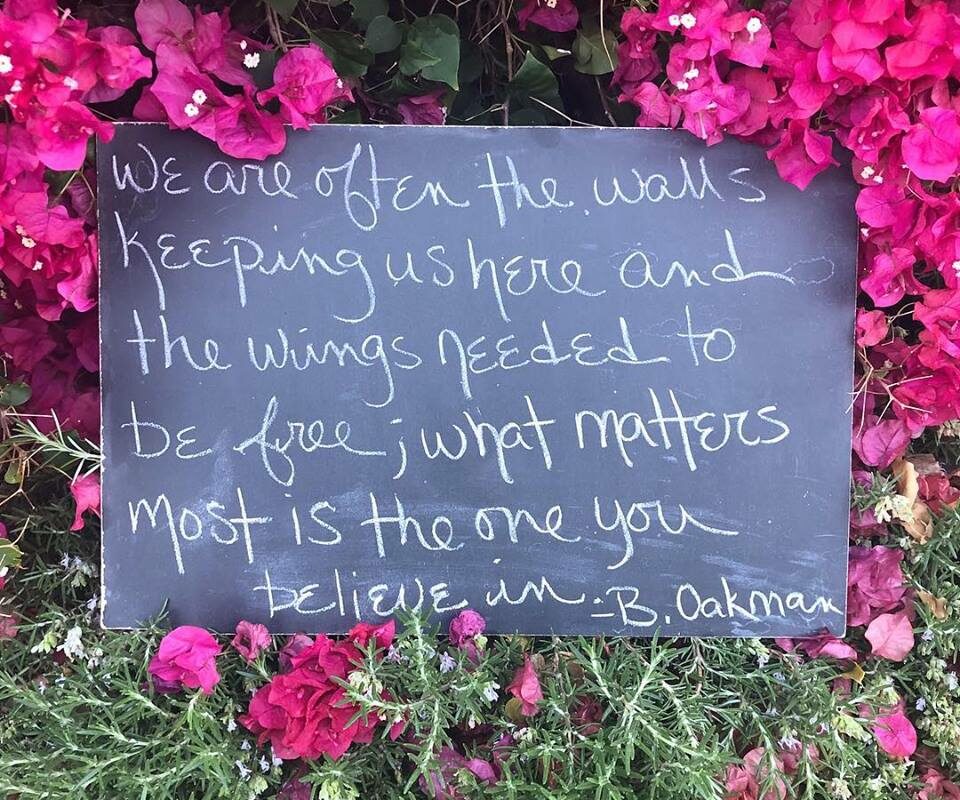 We are often the walls
keeping us here and
the wings needed to
be free; what matters
most is the one you
believe in. -B. Oakman